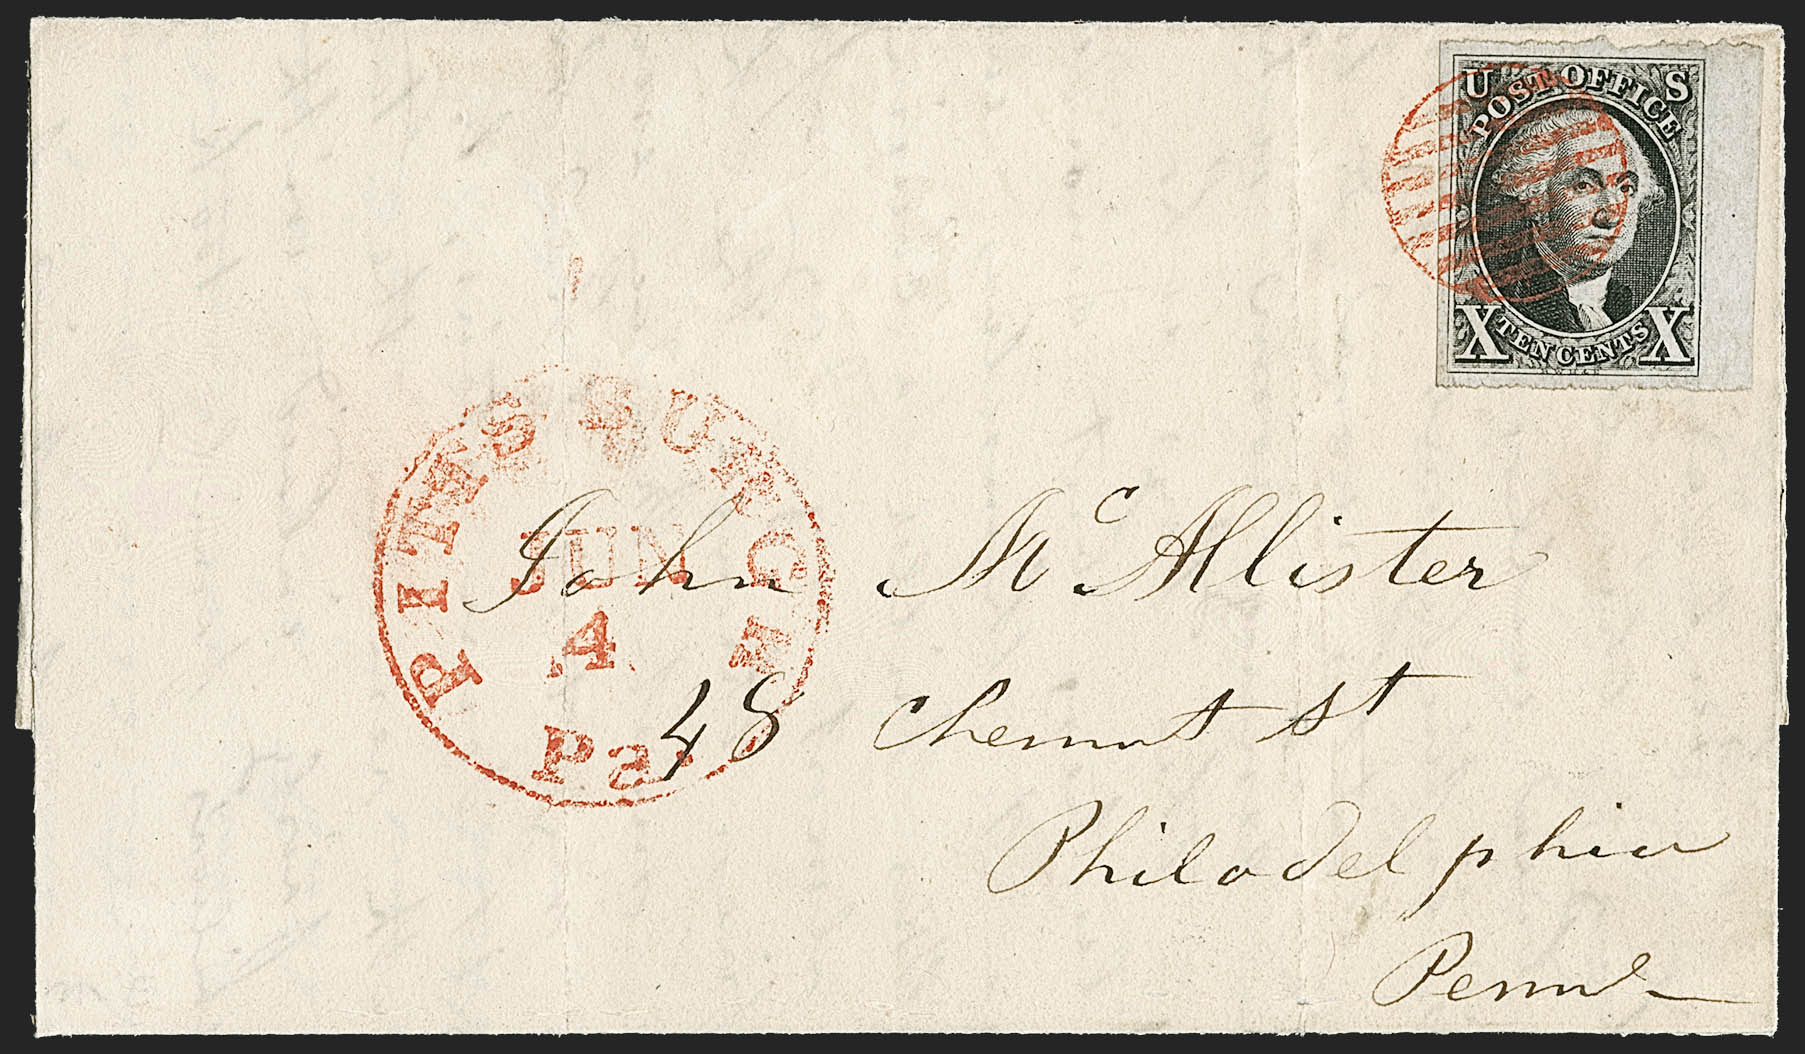 U S
POST OFFICE
X TEN CENTS X
PITTSBURGH
JUN
4
Pa.
John Mc Allister
48 Chesnut st
Philadelphia
Penna